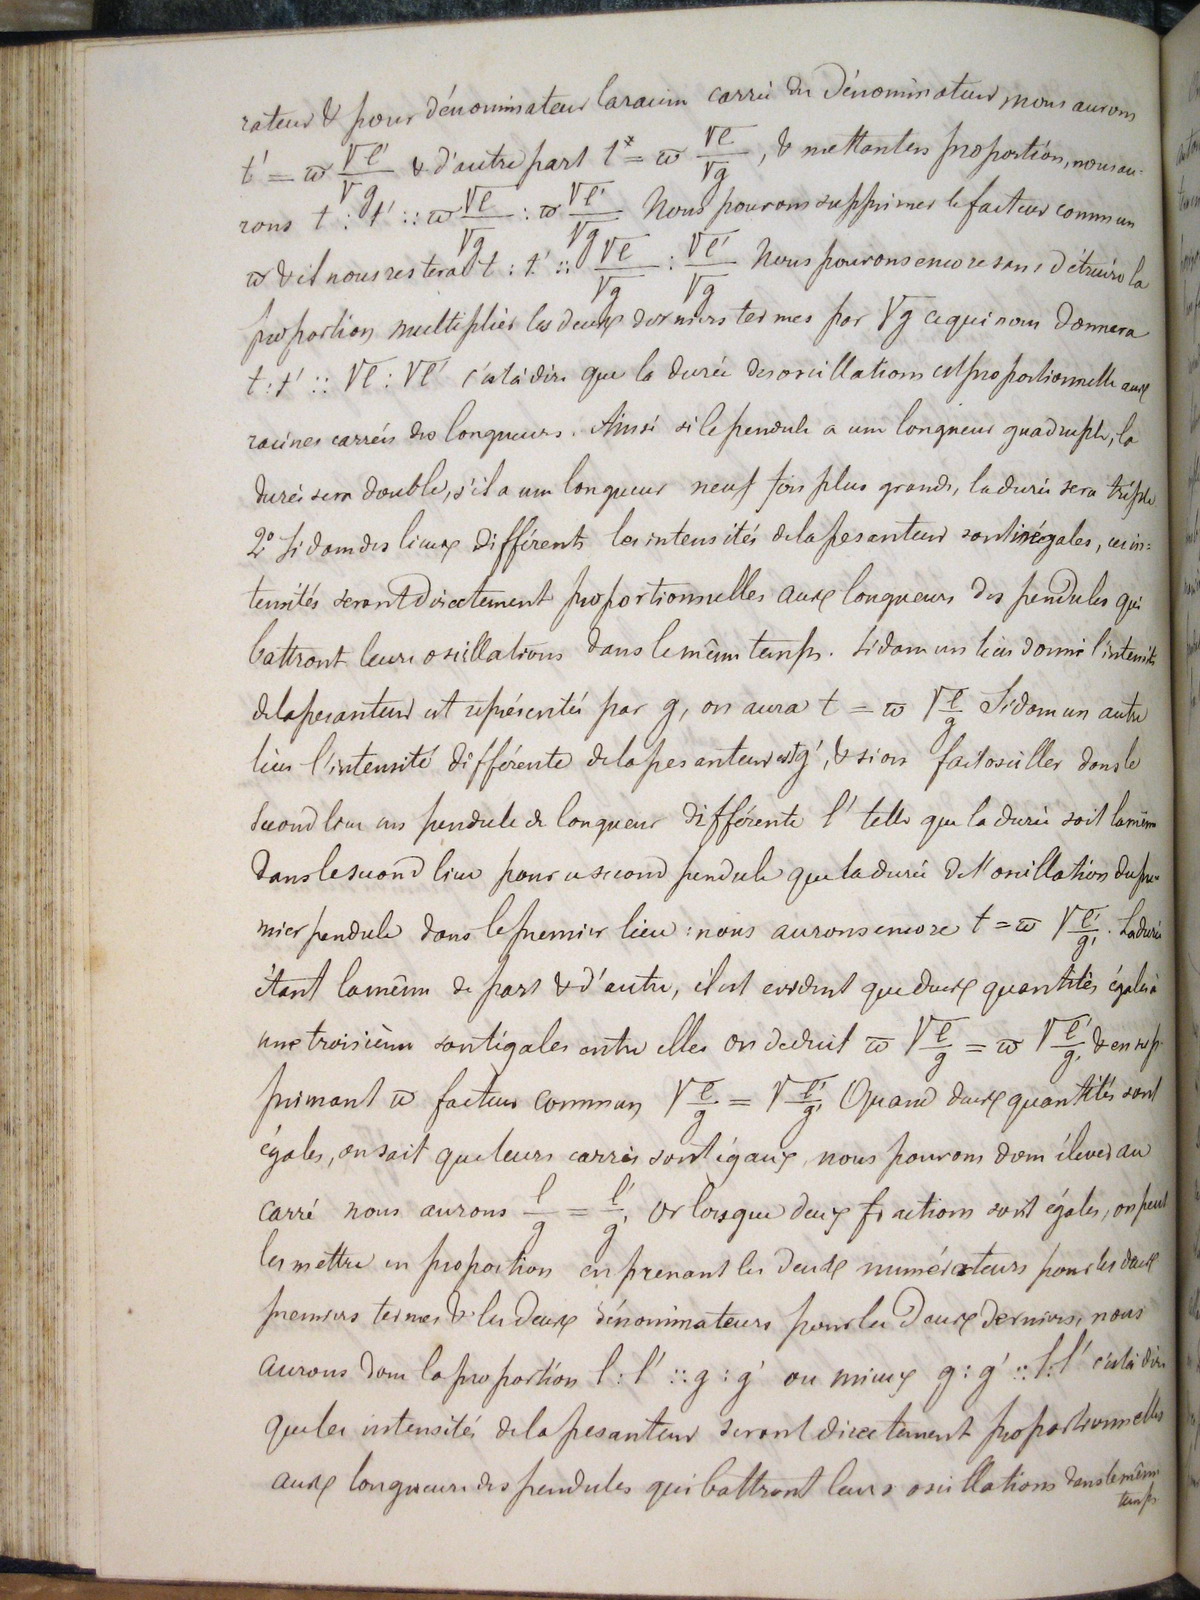 rateur & pour dénominateur la racine carrée du Dénominateur, nous aurons
t' = ϖ √l'/√g & d'autre part t = ϖ √l/√g, & mettant en proportion, nous au-
rons t : t' :: ϖ √l/√g : ϖ √l'/√g Nous pouvons supprimer le facteur commun
ϖ & il nous restera t : t' :: √l/√g : √l'/√g Nous pouvons encore sans détruire la
proportion multiplier les deux derniers termes par √g ce qui nous donnera
t : t' :: √l : √l' c'est à dire que la durée des oscillations est proportionnelle aux
racines carrées des longueurs. Ainsi si le pendule a une longueur quadruple, la
durée sera double, s'il a une longueur neuf fois plus grande, la durée sera triple
2° Si dans des lieux différents les intensités de la pesanteur sont inégales, ces in=
tensités seront directement proportionnelles aux longueurs des pendules qui
battront leurs oscillations dans le même temps. Si dans un lieu donné l'intensité
de la pesanteur est représentée par g, on aura t = ϖ √l/g Si dans un autre
lieu l'intensité différente de la pesanteur est g', & si on fait osciller dans le
second lieu un pendule de longueur différente l' telle que la durée soit la même
dans le second lieu pour ce second pendule que la durée de l'oscillation du pre
mier pendule dans le premier lieu : nous aurons encore t = ϖ √l'/g'. La durée
étant la même de part & d'autre, il est evident que deux quantités égales à
une troisième sont égales entre elles on deduit ϖ √l/g = ϖ √l'/g' & en sup-
primant ϖ facteur commun √l/g = √l'/g' Quand deux quantités sont
égales, on sait que leurs carrés sont égaux, nous pouvons donc élever au
carré nous aurons l/g = l'/g' Or lorsque deux fractions sont égales, on peut
les mettre en proportion en prenant les deux numérateurs pour les deux
premiers termes & les deux dénominateurs pour les deux derniers, nous
aurons donc la proportion l : l' :: g : g' ou mieux g : g' :: l : l' c'est à dire
que les intensités de la pesanteur seront directement proportionnelles
aux longueurs des pendules qui battront leurs oscillations dans le même
temps